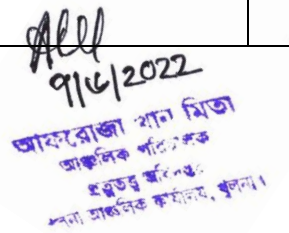 9/6/2022
আফরোজা খান মিতা
আঞ্চলিক পরিচালক
প্রত্নতত্ত্ব অধিদপ্তর
খুলনা আঞ্চলিক কার্যালয়, খুলনা।